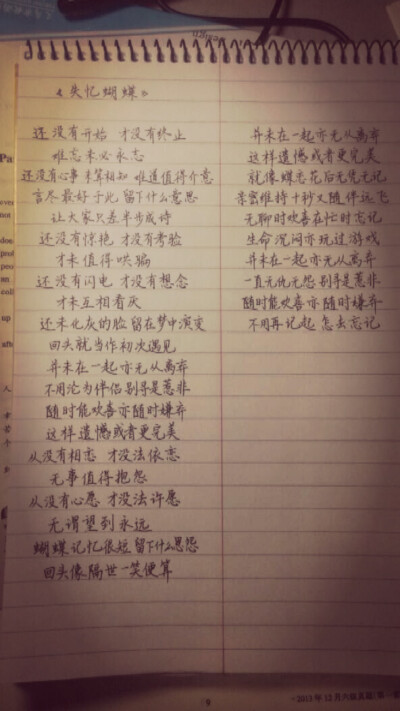 《失忆蝴蝶》
还没有开始 才没有终止
难忘未必永志
还没有心事 未算相知 难道值得介意
言尽最好于此 留下什么意思
让大家只差半步成诗
还没有惊艳 才没有考验
才未值得哄骗
还没有闪电 才没有想念
才未互相看厌
还未化灰的脸 留在梦中演变
回头就当作初次遇见
并未在一起亦无从离弃
不用沦为伴侣别寻是惹非
随时能欢喜亦随时嫌弃
这样遗憾或者更完美
从没有相恋 才没法依恋
无事值得抱怨
从没有心愿 才没法许愿
无谓望到永远
蝴蝶记忆很短 留下什么恩怨
回头像隔世一笑便算
并未在一起亦无从离弃
这样遗憾或者更完美
就像蝶恋花后无凭无记
亲密维持十秒又随伴远飞
无聊时欢喜在忙时忘记
生命沉闷亦玩过游戏
并未在一起亦无从离弃
一直无仇无怨别寻是惹非
随时能欢喜亦随时嫌弃
不用再记起 怎去忘记
Pa
ever
not
doe
prof
peo
on
coll
up
afte
8
<2013年12月六级真题(第一